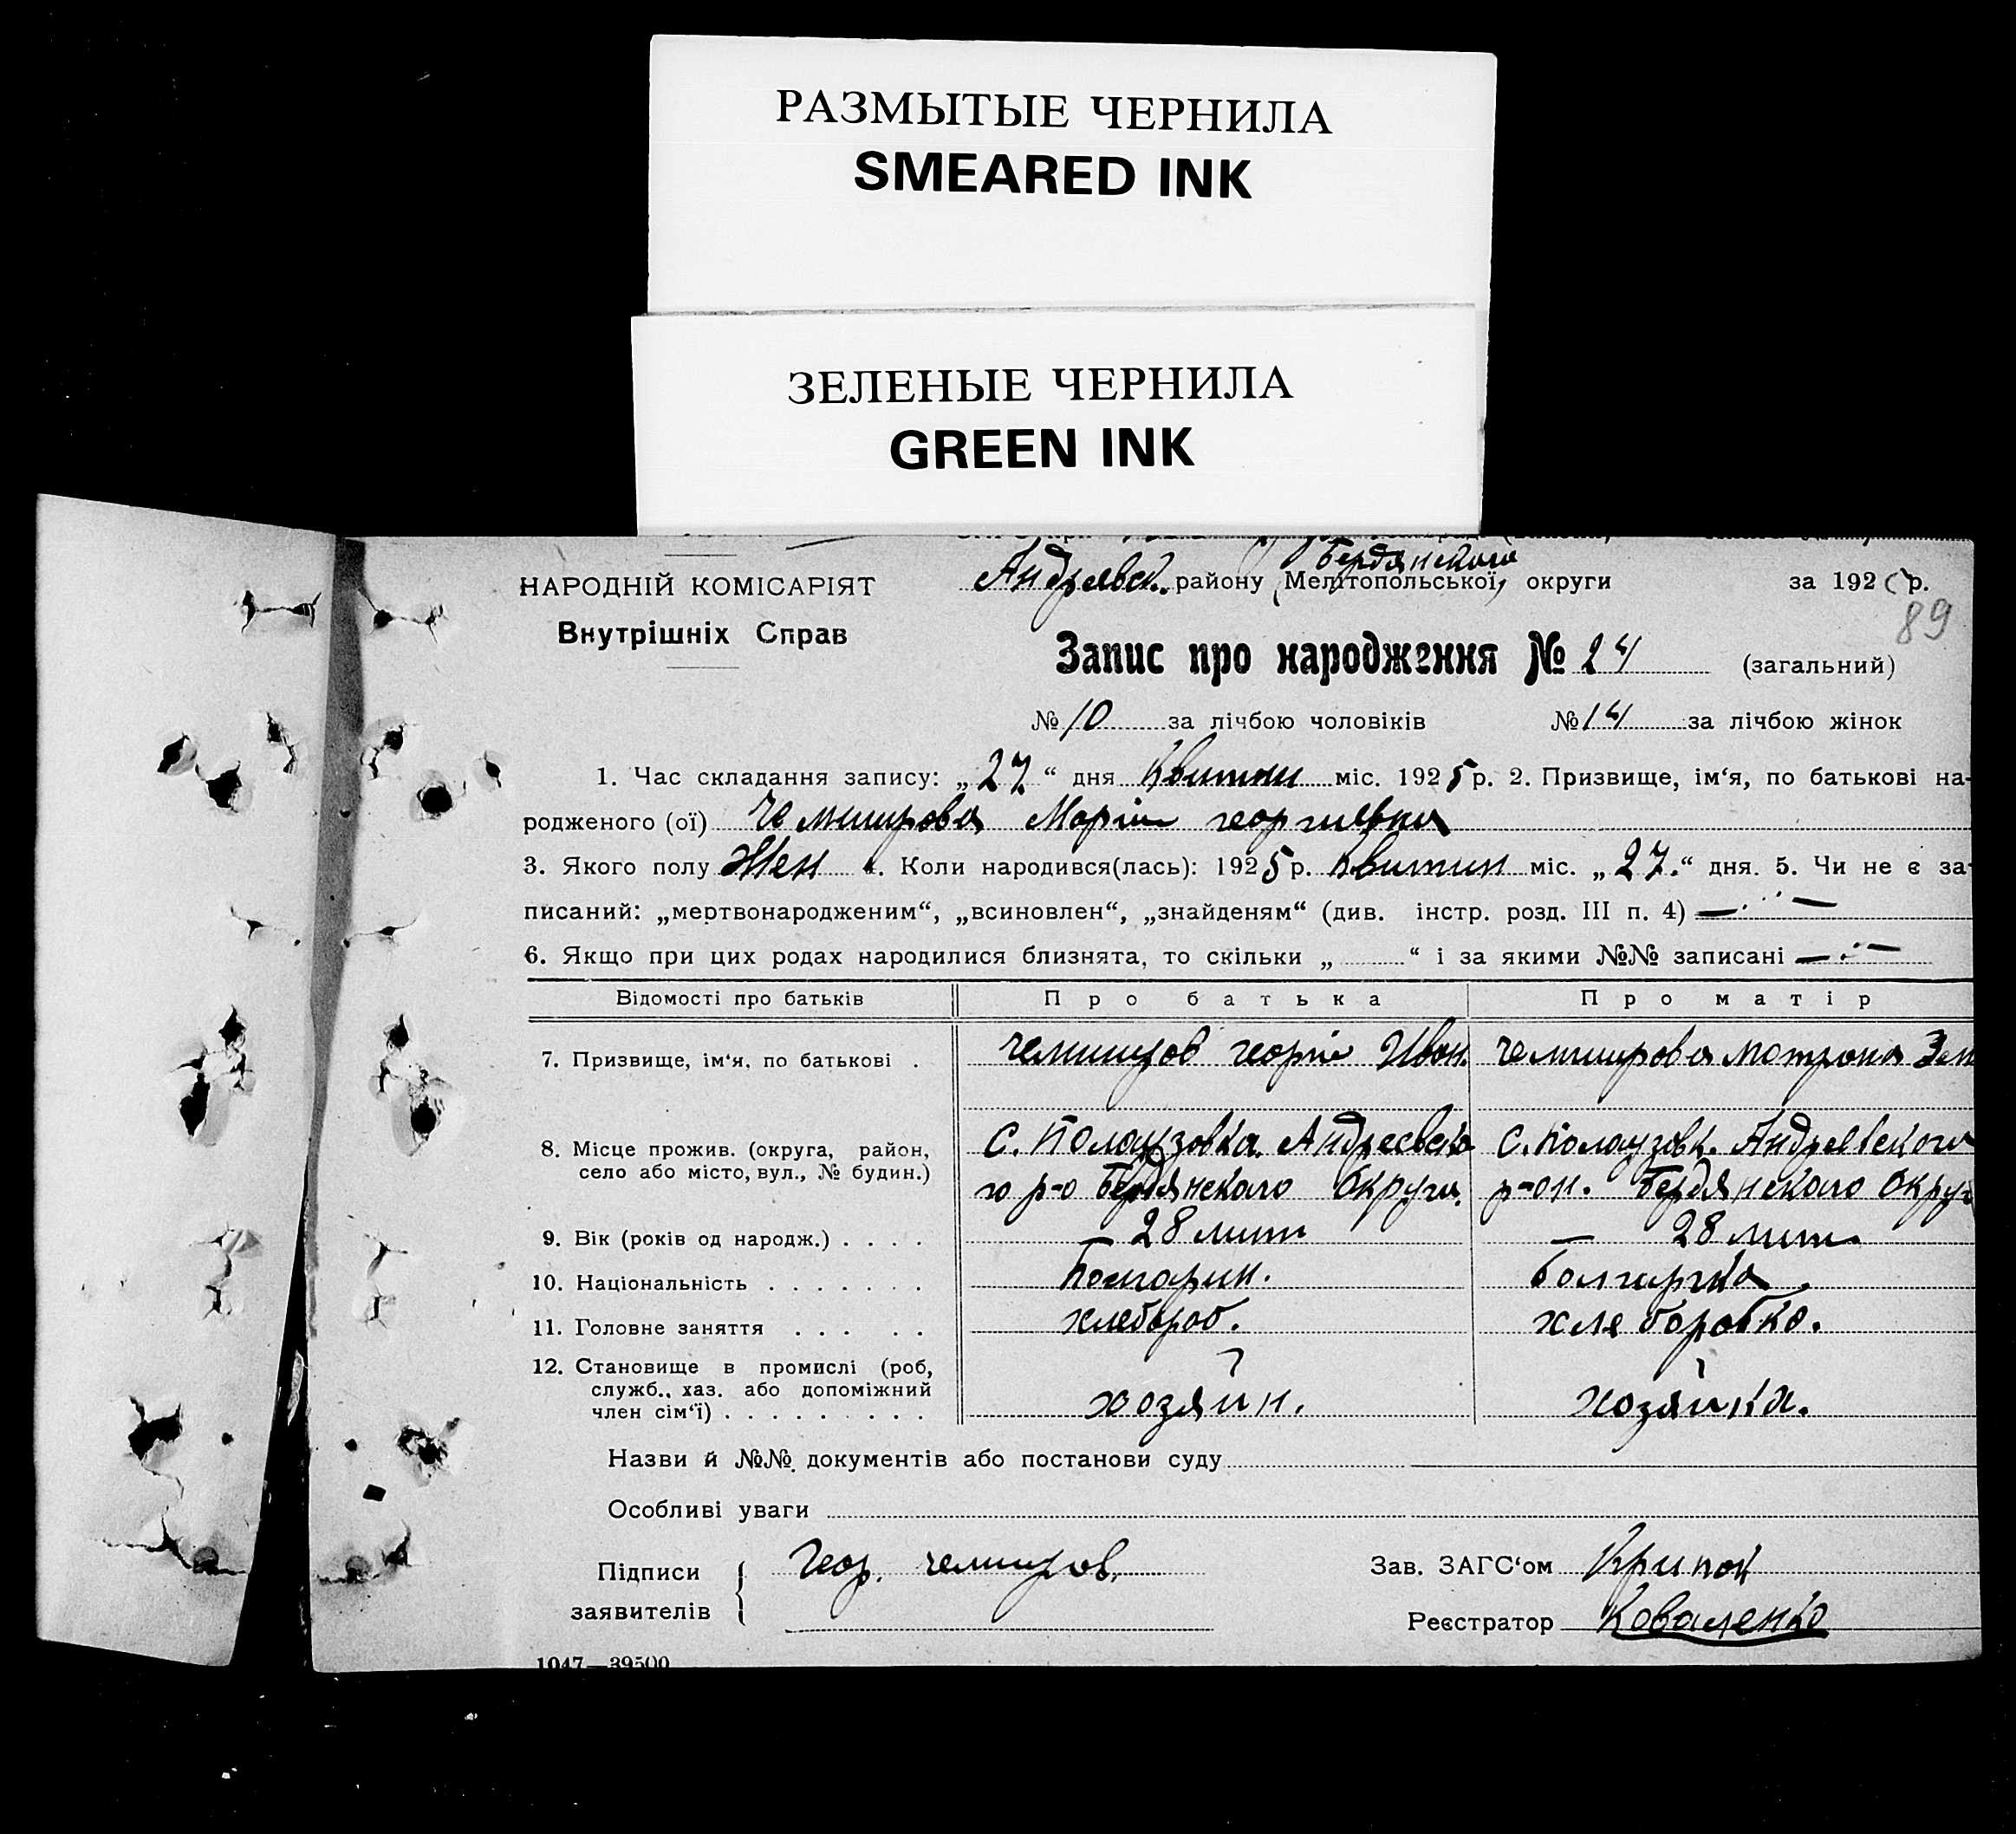 РАЗМЫТЫЕ ЧЕРНИЛА
SMEARED INK
ЗЕЛЕНЫЕ ЧЕРНИЛА
GREEN INK
Бердянского
НАРОДНІЙ КОМІСАРІЯТ Андреевск. району (Мелітопольської) округи за 192 р.
89
Внутрішніх Справ
Запис про народження № 24 (загальний)
№ 10 за лічбою чоловіків № 14 за лічбою жінок
1. Час складання запису: „27“ дня Квитни міс. 1925 р. 2. Призвище, ім‘я, по батькові на-
родженого (ої) Чемширова Марія Георгиевна
3. Якого полу Жен 4. Коли народився(лась): 1925 р. Квитни міс. „27.“ дня. 5. Чи не є за-
писаний: „мертвонародженим“, „всиновлен“, „знайденям“ (див. інстр. розд. III п. 4) —
6. Якщо при цих родах народилися близнята, то скільки „ “ і за якими №№ записані —
Відомості про батьків Про батька Про матір
7. Призвище, ім‘я, по батькові . Чемширов Георгій Иван. Чемширова Матрона Зен
8. Місце прожив. (округа, район, с. Полаузовка Андреевско с. Полаузовк. Андреевского
село або місто, вул., № будин.) го р-о Бердянского Округи. р-он. Бердянского Округ
9. Вік (років од народж.) . . . . — 28 лит — 28 лит
10. Національність . . . . . . . Болгарин. Болгарка.
11. Головне заняття . . . . . хлебороб. хлеборобка.
12. Становище в промислі (роб,
служб., хаз. або допоміжний
член сім‘ї) . . . . . . . . . хозяйн. хозяйка.
Назви й №№ документів або постанови суду
Особливі уваги
Підписи Геор. Чемширов. Зав. ЗАГС‘ом
заявителів Реєстратор Коваленко
1047—39500